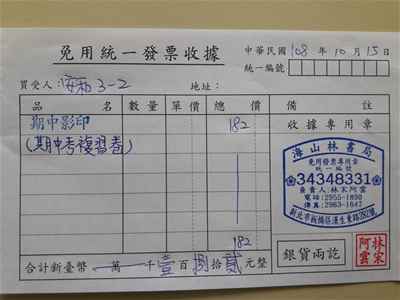 免用統一發票收據
中華民國 108 年 10 月 15 日
統一編號
買受人: 3-2 地址:
品名 數量 單價 總價 備註
期中影印 182 收據專用章
(期中考複習卷)
海山林書局
免用發票專用章
統一編號
34348331
負責人:林宋阿雲
電話:2955-1890
傳真:2963-1647
新北市板橋區漢生東路282號
182
銀貨兩訖
林宋阿雲
合計新臺幣 萬 千 壹 百 捌 拾 貳 元整